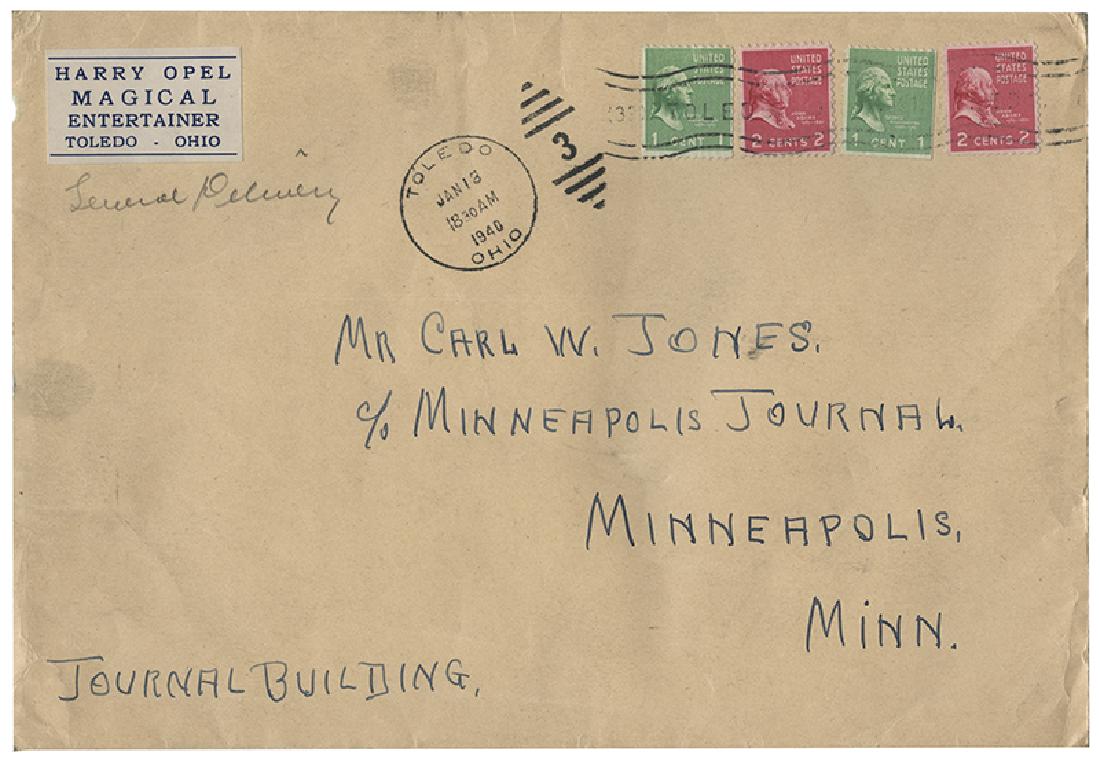 HARRY OPEL
MAGICAL
ENTERTAINER
TOLEDO - OHIO
General Delivery
TOLEDO
JAN 13
1830 AM
1940
OHIO
3
TOLEDO
UNITED
STATES
POSTAGE
1 CENT 1
UNITED
STATES
POSTAGE
JOHN
ADAMS
2 CENTS 2
UNITED
STATES
POSTAGE
1 CENT 1
UNITED
STATES
POSTAGE
JOHN
ADAMS
2 CENTS 2
MR CARL W. JONES.
c/o MINNEAPOLIS JOURNAL.
MINNEAPOLIS,
MINN.
JOURNAL BUILDING,